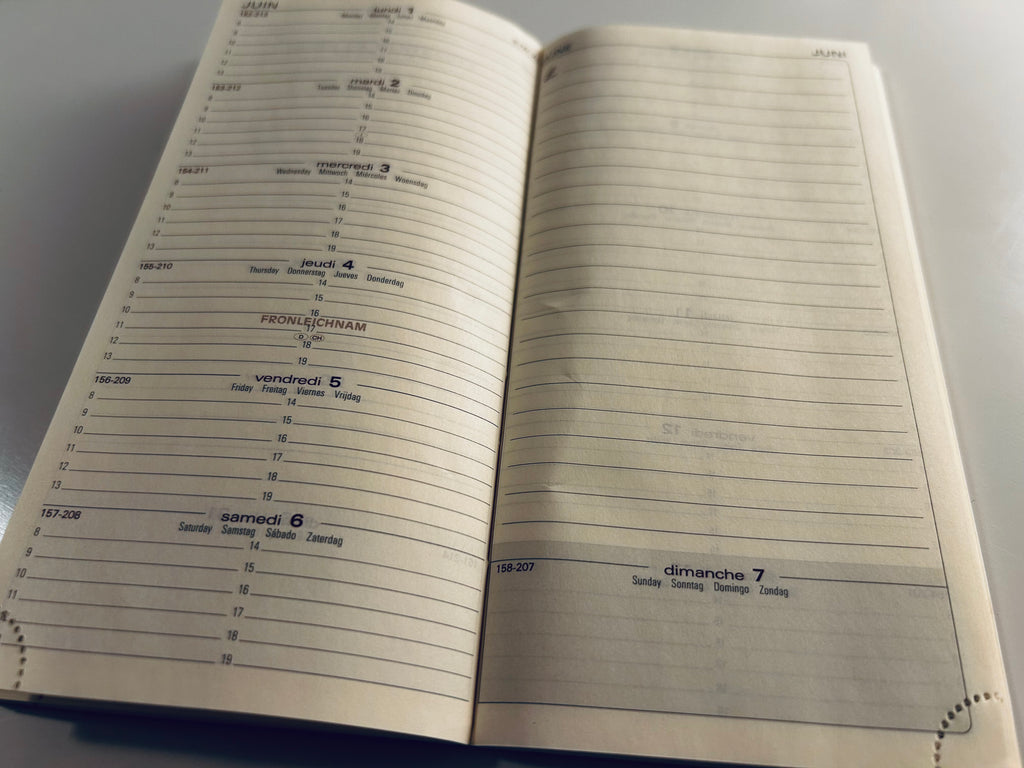 JUIN
152-213
lundi 1
mardi 2
153-212
Tuesday Dienstag Martes Dinsdag
8
9
10
11
12
13
14
15
16
17
18
19
mercredi 3
154-211
Wednesday Mittwoch Miércoles Woensdag
8
9
10
11
12
13
14
15
16
17
18
19
jeudi 4
155-210
Thursday Donnerstag Jueves Donderdag
8
9
10
11
12
13
14
15
16
FRONLEICHNAM
17
D CH
18
19
vendredi 5
156-209
Friday Freitag Viernes Vrijdag
8
9
10
11
12
13
14
15
16
17
18
19
samedi 6
157-208
Saturday Samstag Sábado Zaterdag
8
9
10
11
14
15
16
17
18
19
JUNI
158-207
dimanche 7
Sunday Sonntag Domingo Zondag